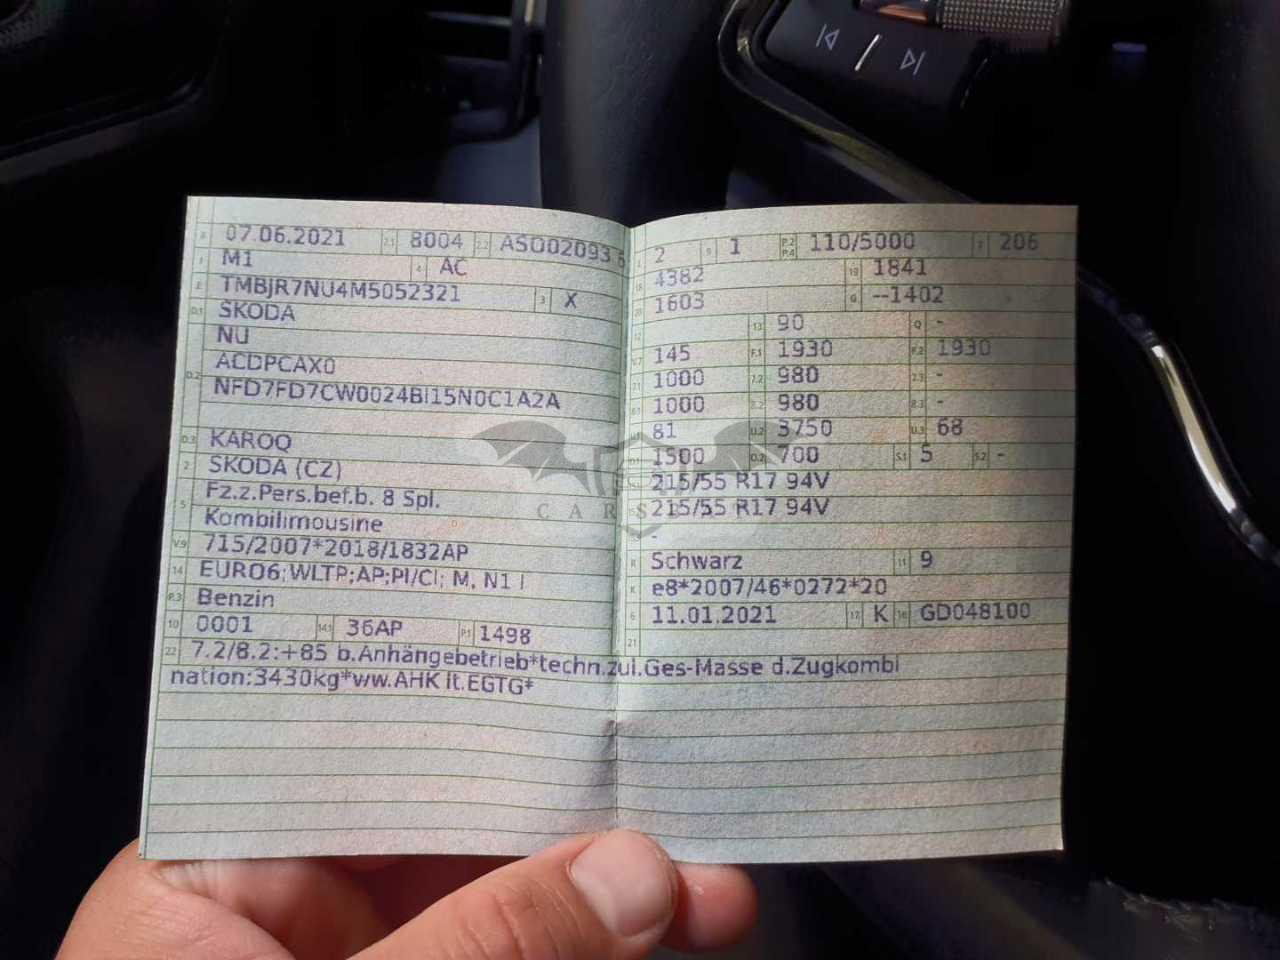 B 07.06.2021 2.1 8004 2.2 ASO02093 6
J M1 4 AC
E TMBJR7NU4M5052321 3 X
D.1 SKODA
NU
D.2 ACDPCAX0
NFD7FD7CW0024BI15N0C1A2A
D.3 KAROQ
2 SKODA (CZ)
5 Fz.z.Pers.bef.b. 8 Spl.
Kombilimousine
V.9 715/2007*2018/1832AP
14 EURO6;WLTP;AP;PI/CI; M, N1 I
P.3 Benzin
10 0001 14.1 36AP P.1 1498
L 2 9 1 P.2 P.4 110/5000 T 206
18 4382 19 1841
20 1603 G --1402
12 13 90 Q -
V.7 145 F.1 1930 F.2 1930
7.1 1000 7.2 980 7.3 -
8.1 1000 8.2 980 8.3 -
U.1 81 U.2 3750 U.3 68
O.1 1500 O.2 700 S.1 5 S.2 -
215/55 R17 94V
215/55 R17 94V
-
R Schwarz 11 9
K e8*2007/46*0272*20
6 11.01.2021 17 K 16 GD048100
21
22 7.2/8.2:+85 b.Anhängebetrieb*techn.zul.Ges-Masse d.Zugkombi
nation:3430kg*ww.AHK lt.EGTG*